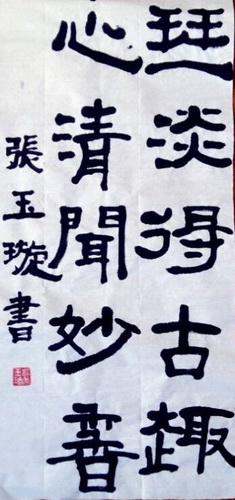 琴淡得古趣
心清聞妙香
張玉璇書